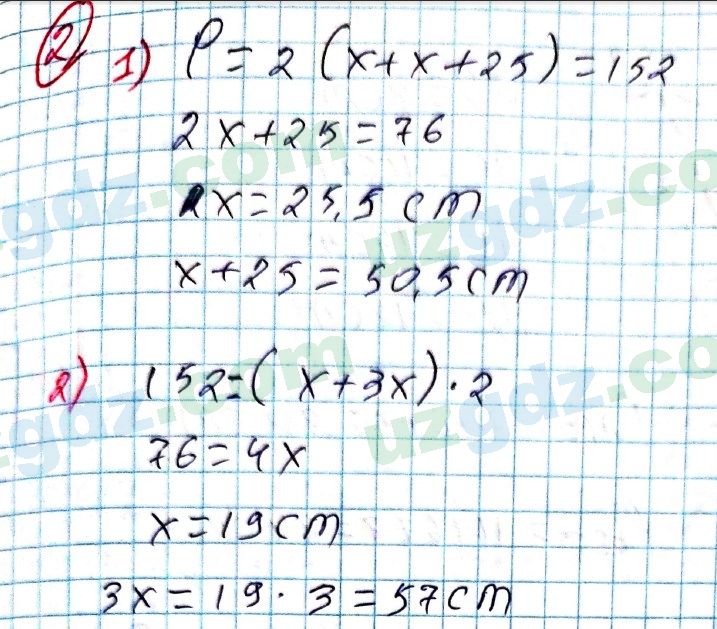 2
1) P = 2 (x+x+25) = 152
2x+25=76
x=25,5 cm
x+25 = 50,5 cm
2) 152=(x+3x)·2
76=4x
x=19 cm
3x = 19·3=57 cm
uzgdz.com
uzgdz.com
uzgdz.com
uzgdz.com